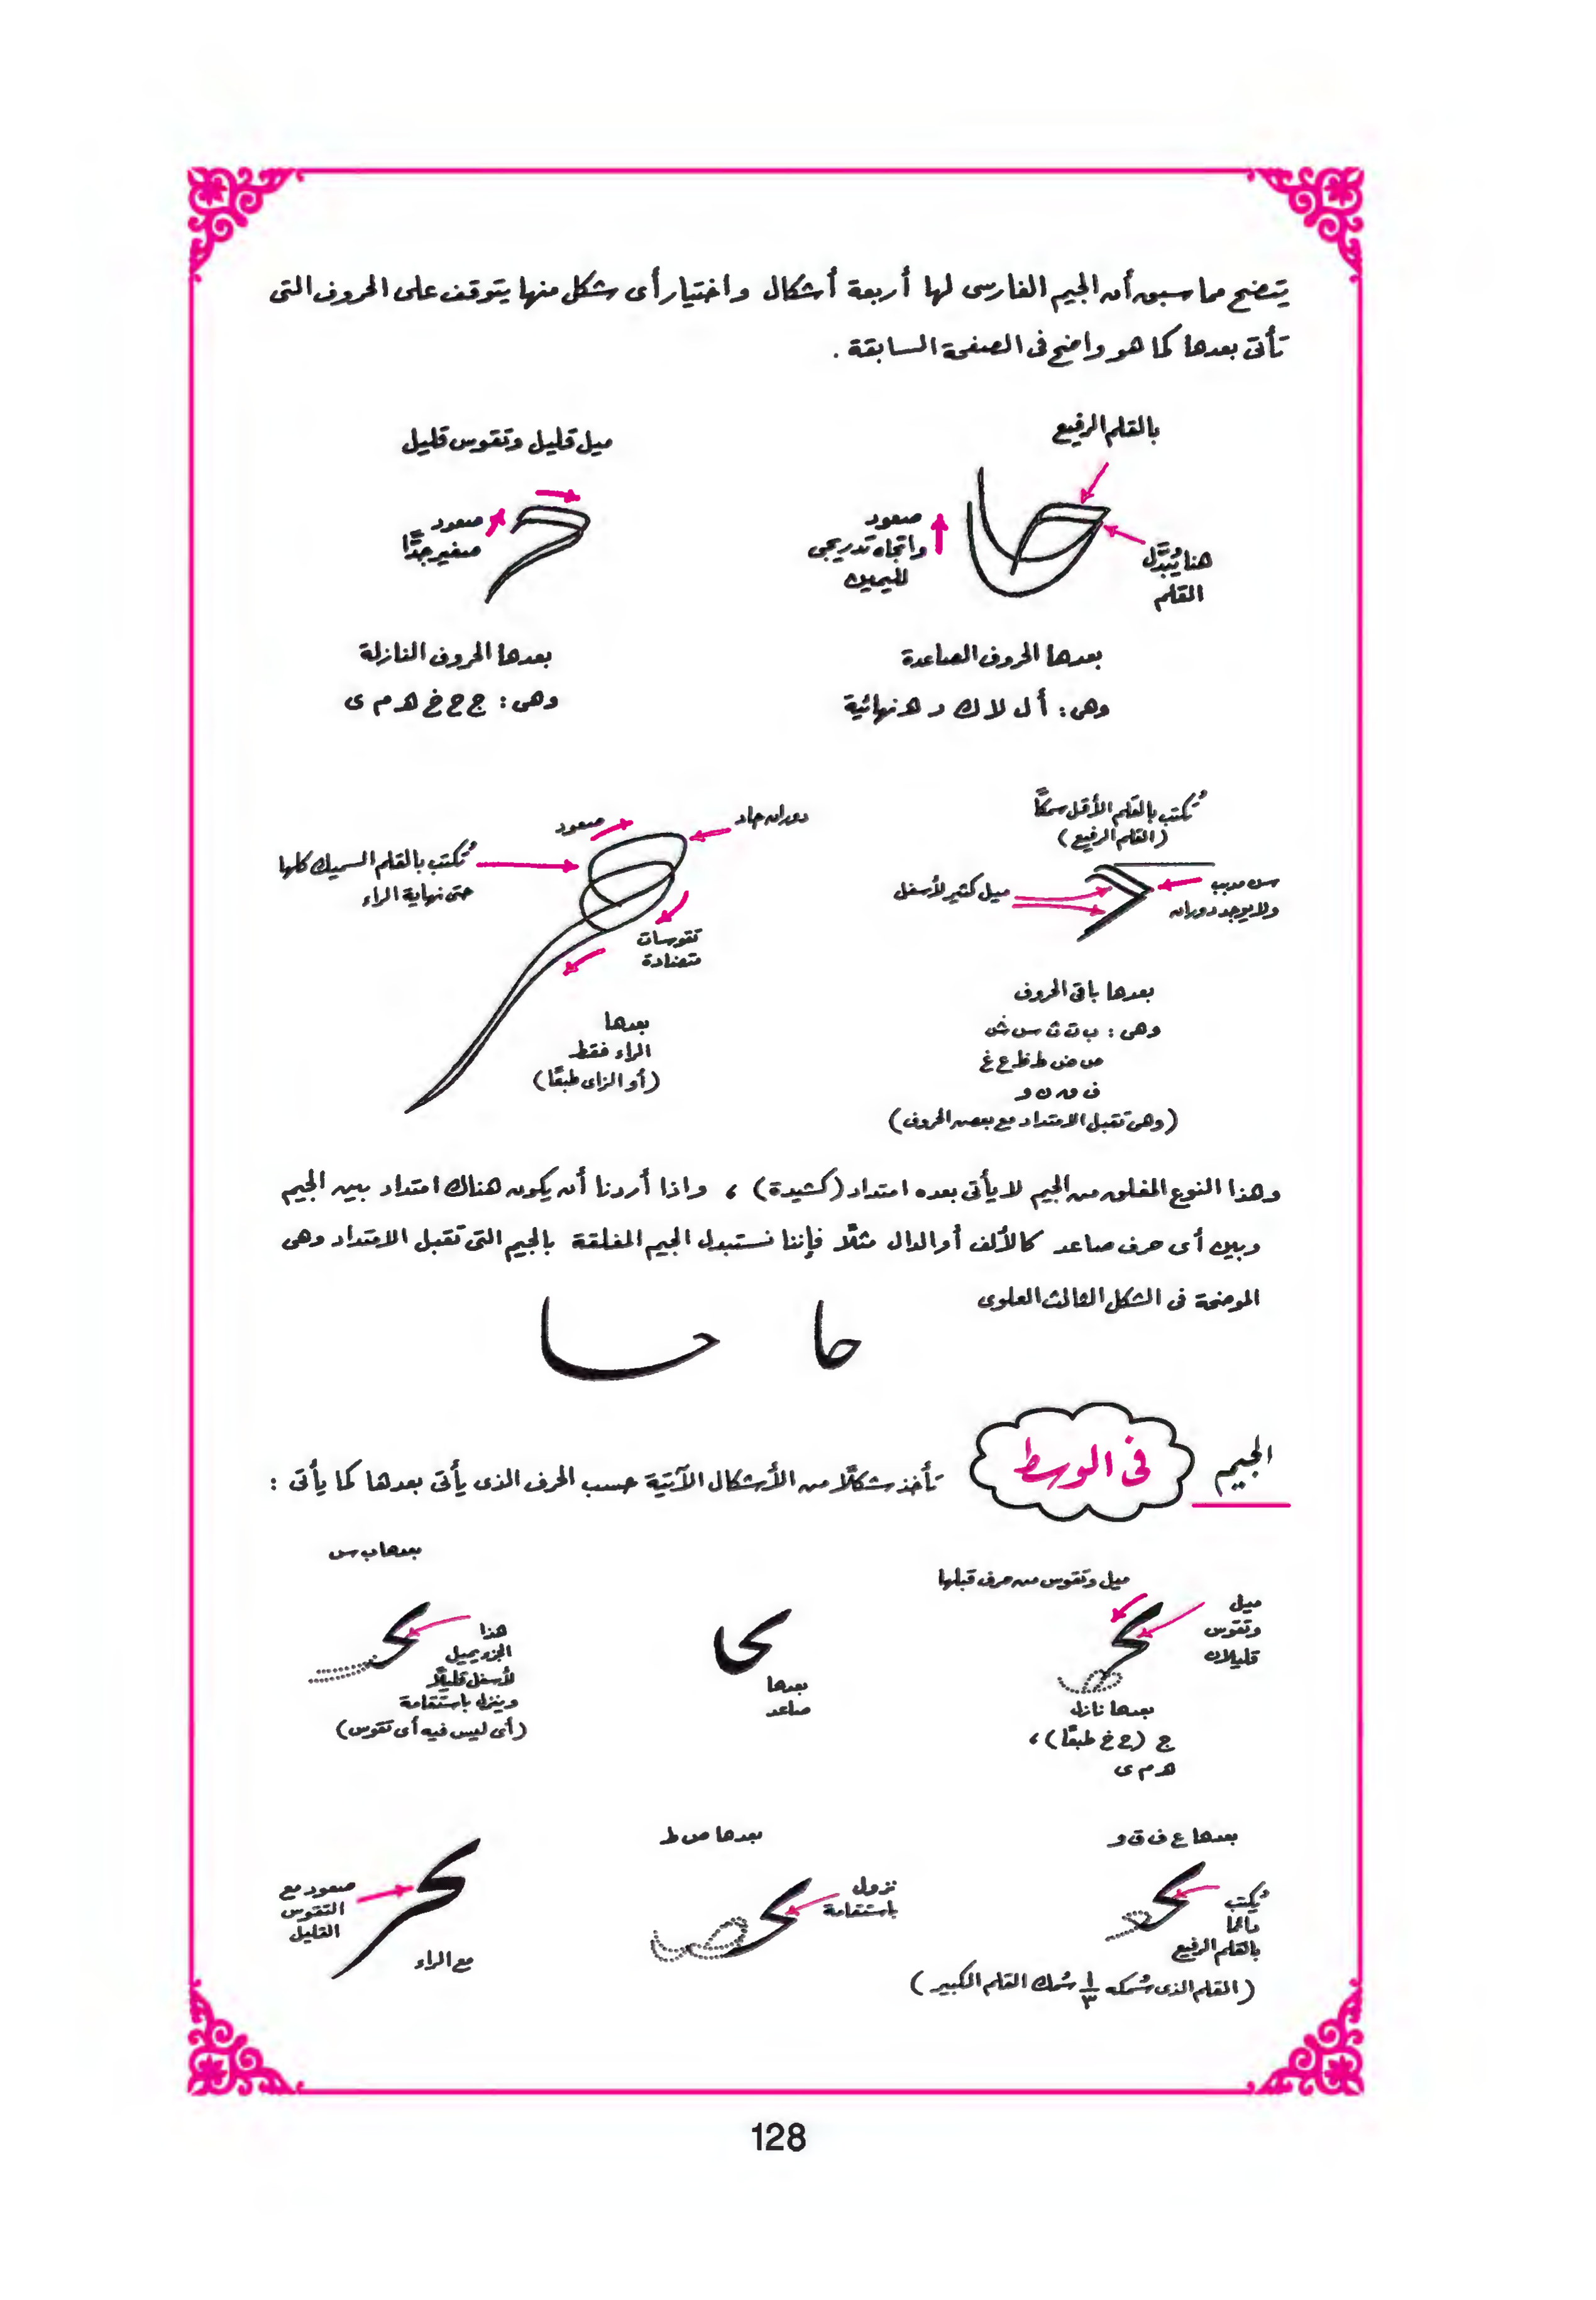 يتضح مما سبق أن الجيم الفارسى لها أربعة أشكال واختيار أى شكل منها يتوقف على الحروف التى
تأتى بعدها كما هو واضح فى الصفحة السابقة .
بالقلم الرفيع
صعود
واتجاه تدريجى
لليمين
هنا يُبَدَّل
القلم
بعدها الحروف الصاعدة
وهى : أ ل لا ك د ه نهائية
ميل قليل وتقوس قليل
صعود
صغير جدًّا
بعدها الحروف النازلة
وهى : ج ح خ ه م ى
تُكتب بالقلم الأقل سمكًا
(القلم الرفيع)
سن مدبب
ولا يوجد دوران
ميل كثير لأسفل
بعدها باقى الحروف
وهى : ب ت ث س ش
ص ض ط ظ ع غ
ف ق ن و
(وهى تقبل الامتداد مع بعض الحروف)
دوران حاد
صعود
تُكتب بالقلم السميك كلها
حتى نهاية الراء
تقوسات
متضادة
بعدها
الراء فقط
(أو الزاى طبعًا)
وهذا النوع المغلق من الجيم لا يأتى بعده امتداد (كشيدة) ، واذا أردنا أن يكون هناك امتداد بين الجيم
وبين أى حرف صاعد كالألف أو الدال مثلًا فإننا نستبدل الجيم المغلقة بالجيم التى تقبل الامتداد وهى
الموضحة فى الشكل الثالث العلوى
حا حا
الجيم فى الوسط تأخذ شكلًا من الأشكال الآتية حسب الحرف الذى يأتى بعدها كما يأتى :
ميل وتقوس من حرف قبلها
ميل
وتقوس
قليلان
بعدها نازل
ج (ح خ طبعًا) ،
ه م ى
بعدها
صاعد
بعدها ب س
هذا
الجزء يميل
لأسفل قليلًا
وينزل باستقامة
(أى ليس فيه أى تقوس)
بعدها ع ف ق و
تُكتب
دائما
بالقلم الرفيع
(القلم الذى سُمكه ١/٣ سُمك القلم الكبير)
بعدها ص ط
نزول
باستقامة
صعود مع
التقوس
القليل
مع الراء
128